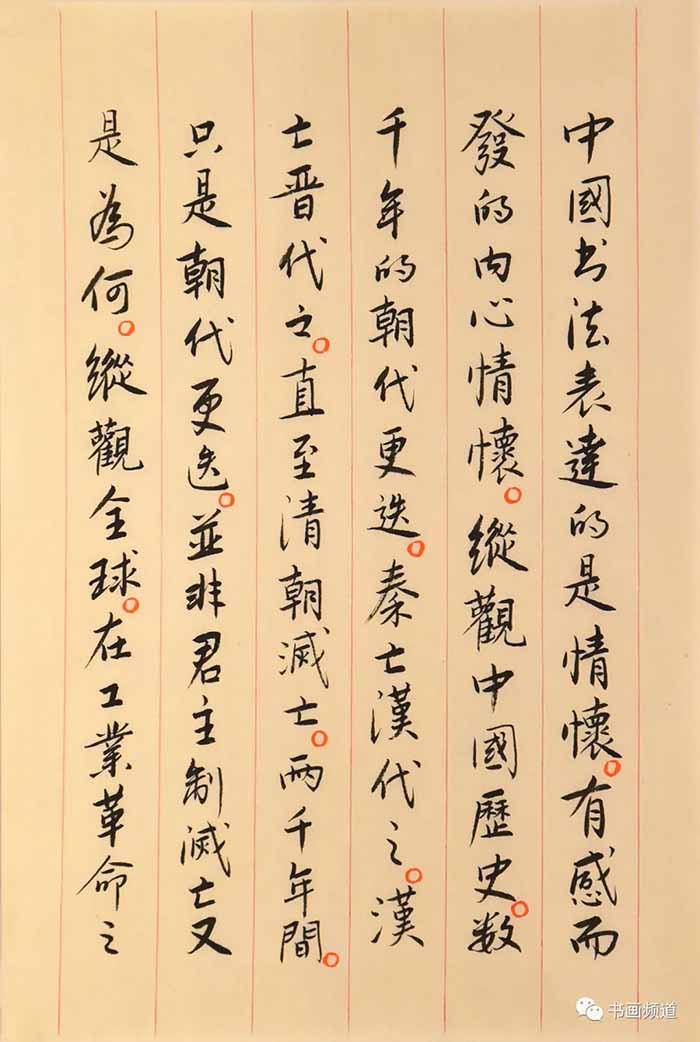 中國书法表達的是情懷。有感而
發的内心情懷。縱觀中國歷史。数
千年的朝代更迭。秦亡漢代之。漢
亡晋代之。直至清朝滅亡。两千年間。
只是朝代更迭。並非君主制滅亡又
是為何。縱觀全球。在工業革命之
书画频道